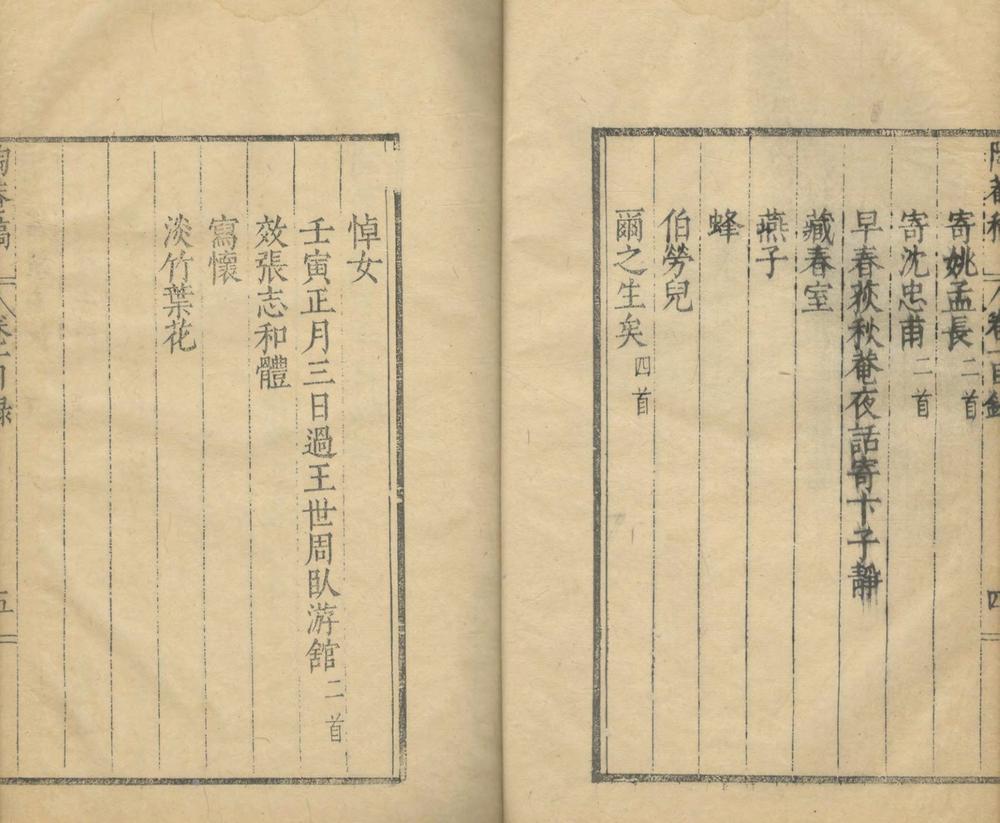 寄姚孟長二首
寄沈忠甫二首
早春荻秋菴夜話寄卞子靜
藏春室
燕子
蜂
伯勞兒
爾之生矣四首
悼女
壬寅正月三日過王世周臥游館二首
效張志和體
寫懷
淡竹葉花
五